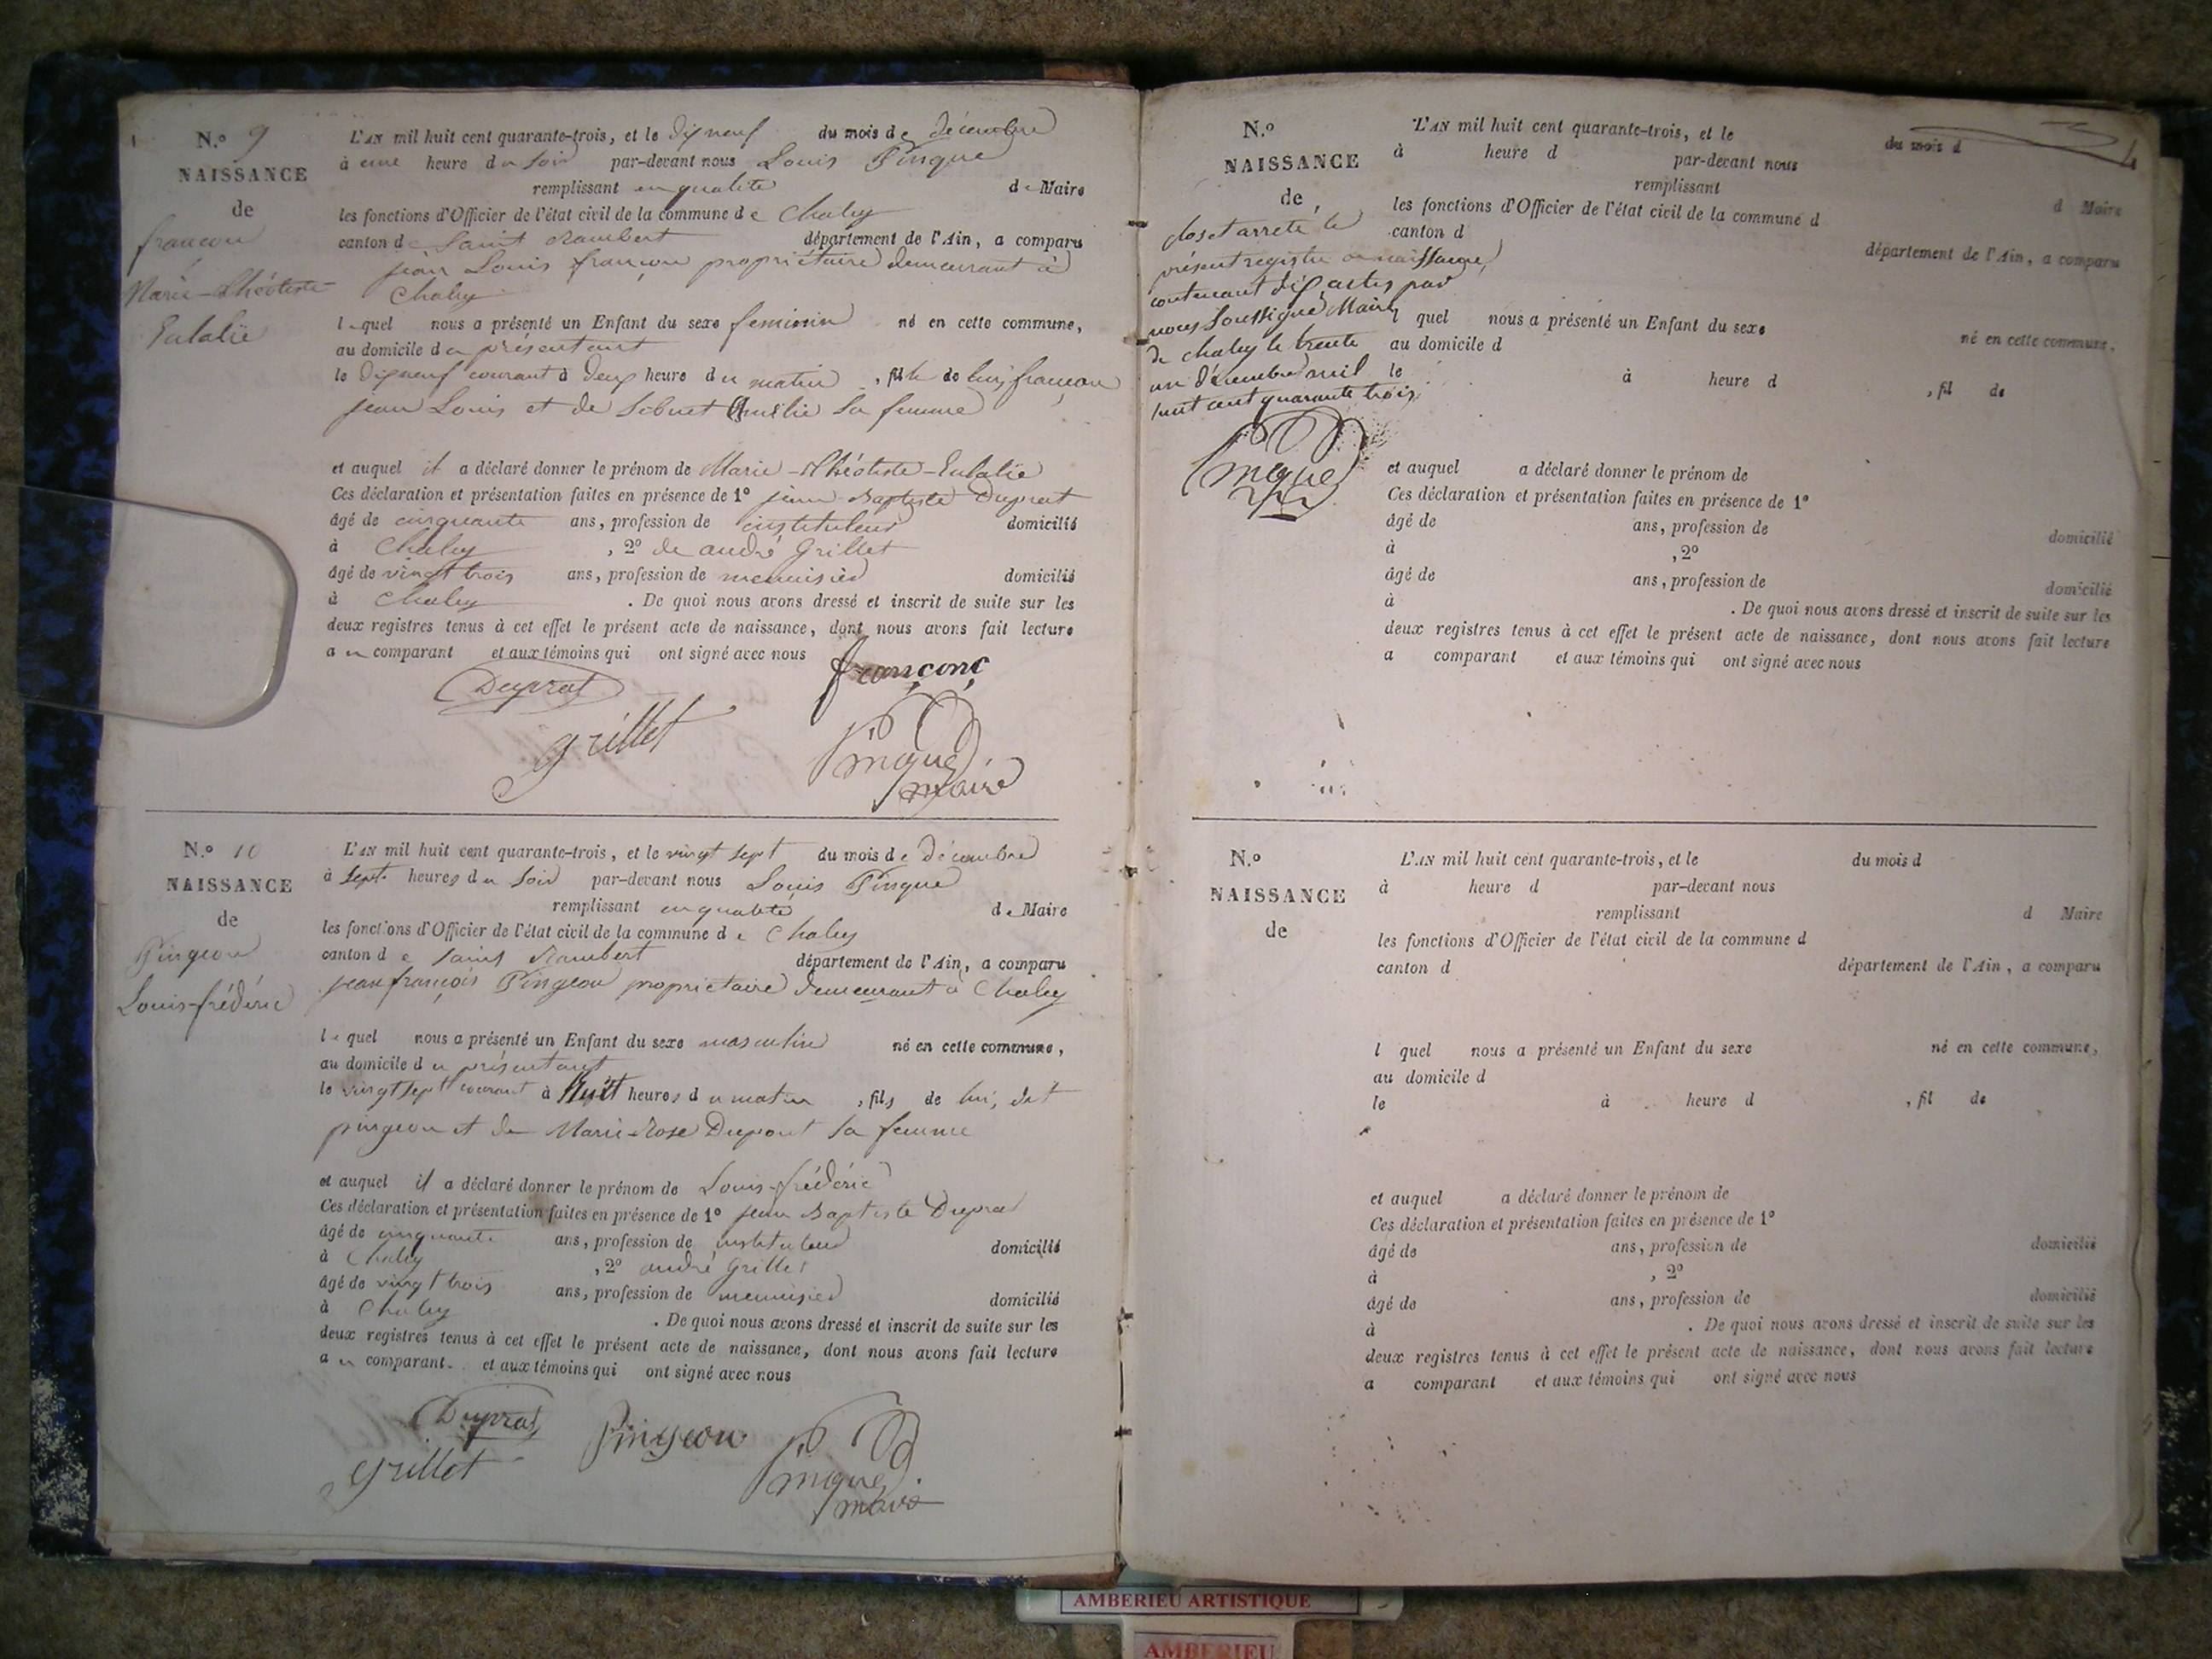 N.o 9
NAISSANCE
de
françon
Marie-Théotiste
Eulalie
L'AN mil huit cent quarante-trois, et le dix neuf du mois de décembre
à une heure du soir par-devant nous Louis Pingue
remplissant en qualité de Maire
les fonctions d'Officier de l'état civil de la commune de Chaley
canton de Saint Rambert département de l'Ain, a comparu
jean Louis françon propriétaire demeurant à
Chaley
lequel nous a présenté un Enfant du sexe feminin né en cette commune,
au domicile du présentant
le dix neuf courant à deux heure du matin, fille de luy françon
jean Louis et de Amélie sa femme
et auquel il a déclaré donner le prénom de Marie-Théotiste-Eulalie
Ces déclaration et présentation faites en présence de 1º jean Baptiste Duprat
âgé de cinquante ans, profession de instituteur domicilié
à Chaley, 2º de andré Grillet
âgé de vingt trois ans, profession de menuisier domicilié
à Chaley. De quoi nous avons dressé et inscrit de suite sur les
deux registres tenus à cet effet le présent acte de naissance, dont nous avons fait lecture
au comparant et aux témoins qui ont signé avec nous
françon
Duprat
grillet
Pingue
maire
N.o 10
NAISSANCE
de
Pingeon
Louis-frédéric
L'AN mil huit cent quarante-trois, et le vingt sept du mois de décembre
à sept heures du soir par-devant nous Louis Pingue
remplissant en qualité de Maire
les fonctions d'Officier de l'état civil de la commune de Chaley
canton de saint Rambert département de l'Ain, a comparu
jean françois Pingeon propriétaire demeurant à Chaley
lequel nous a présenté un Enfant du sexe masculin né en cette commune,
au domicile du présentant
le vingt sept courant à Huit heures du matin, fils de lui, dit
pingeon et de Marie-Rose Dupont sa femme
et auquel il a déclaré donner le prénom de Louis-frédéric
Ces déclaration et présentation faites en présence de 1º jean Baptiste Duprat
âgé de cinquante ans, profession de instituteur domicilié
à Chaley, 2º andré Grillet
âgé de vingt trois ans, profession de menuisier domicilié
à Chaley. De quoi nous avons dressé et inscrit de suite sur les
deux registres tenus à cet effet le présent acte de naissance, dont nous avons fait lecture
au comparant. et aux témoins qui ont signé avec nous
Duprat
grillet
Pingeon
Pingue
maire
N.o
NAISSANCE
de
clos et arreté le
présent registre de naissance,
contenant dix actes par
nous soussigné Maire
de chaley le trente
un décembre mil
huit cent quarante trois
Pingue
L'AN mil huit cent quarante-trois, et le du mois d
à heure d par-devant nous
remplissant d Maire
les fonctions d'Officier de l'état civil de la commune d
canton d département de l'Ain, a comparu
quel nous a présenté un Enfant du sexe né en cette commune,
au domicile d
le à heure d, fil de
et auquel a déclaré donner le prénom de
Ces déclaration et présentation faites en présence de 1º
âgé de ans, profession de domicilié
à, 2º
âgé de ans, profession de domicilié
à. De quoi nous avons dressé et inscrit de suite sur les
deux registres tenus à cet effet le présent acte de naissance, dont nous avons fait lecture
a comparant et aux témoins qui ont signé avec nous
N.o
NAISSANCE
de
L'AN mil huit cent quarante-trois, et le du mois d
à heure d par-devant nous
remplissant d Maire
les fonctions d'Officier de l'état civil de la commune d
canton d département de l'Ain, a comparu
l quel nous a présenté un Enfant du sexe né en cette commune,
au domicile d
le à heure d, fil de
et auquel a déclaré donner le prénom de
Ces déclaration et présentation faites en présence de 1º
âgé de ans, profession de domicilié
à, 2º
âgé de ans, profession de domicilié
à. De quoi nous avons dressé et inscrit de suite sur les
deux registres tenus à cet effet le présent acte de naissance, dont nous avons fait lecture
a comparant et aux témoins qui ont signé avec nous
AMBERIEU ARTISTIQUE
AMBERIEU